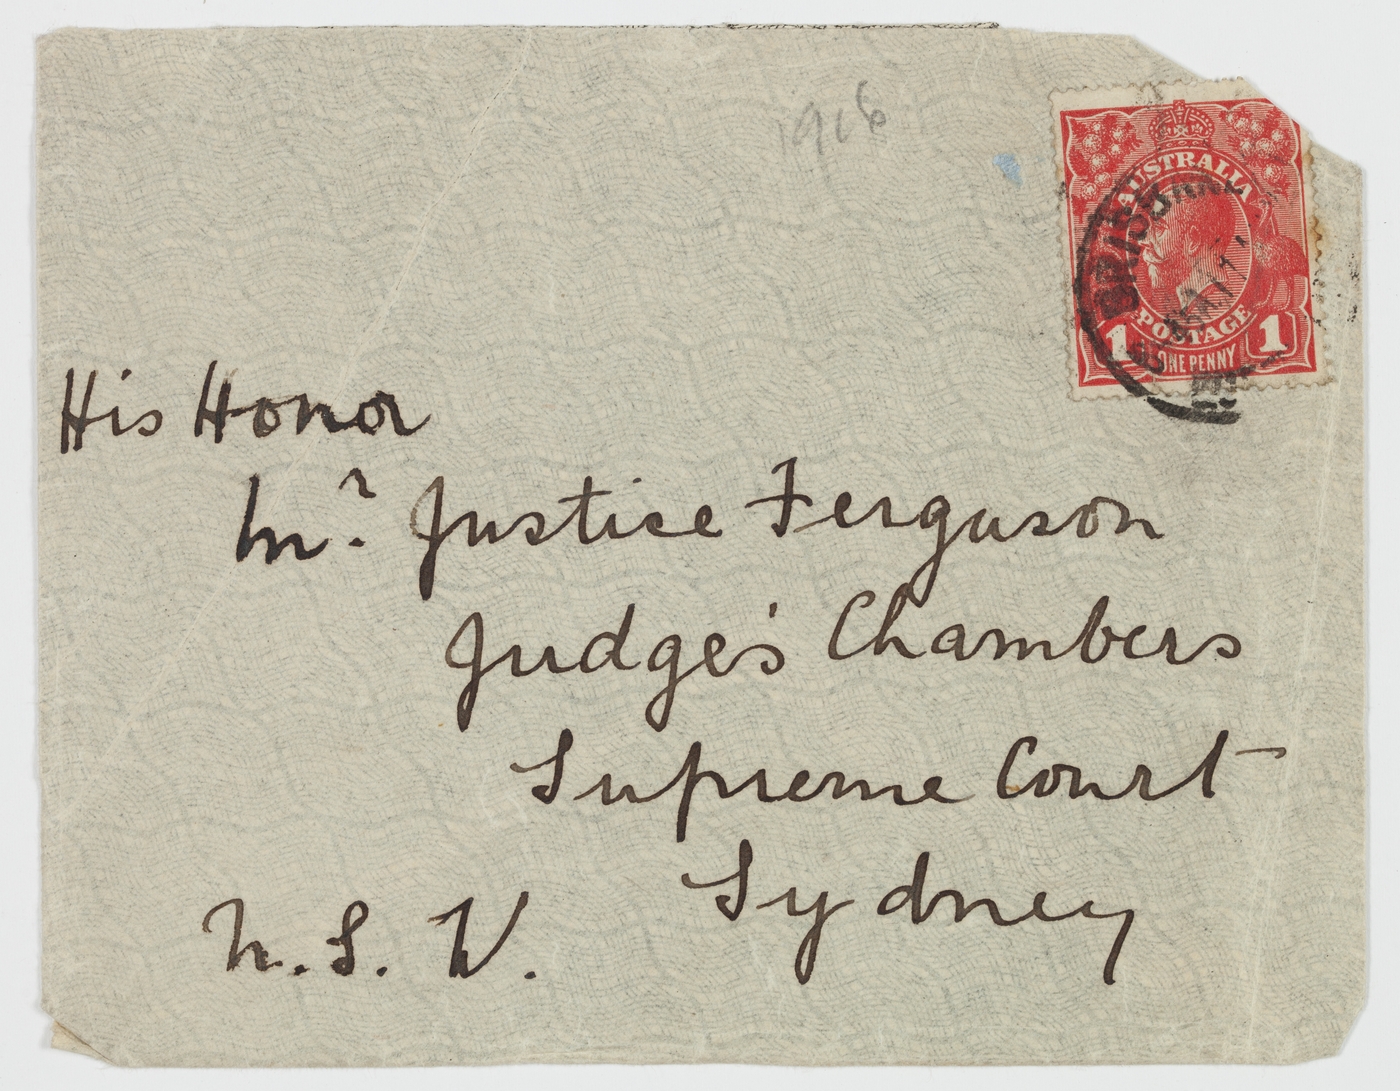 1916
AUSTRALIA
BRISBANE
POSTAGE
1 ONE PENNY 1
His Honor
Mr. Justice Ferguson
Judge's Chambers
Supreme Court
Sydney
N. S. W.